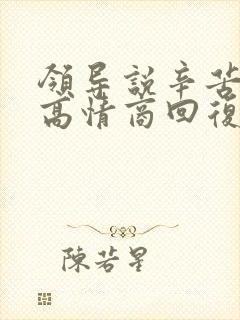 領导說辛苦
高情商回復
陳若星